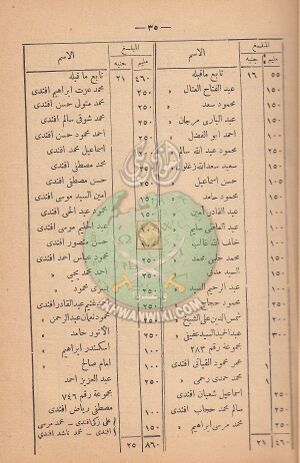 — ٣٥ —
المبلغ الاسم
مليم جنيه
٥٥ ١٦ تابع ماقبله
١٥٠ عبد الفتاح العتال »
١٥٠ محمود سعد »
عبد البارى مرجان »
١٠٠ احمد ابو الفضل »
محمود عبد الله سالم
سعيد سعد الله زغلول
حسن اسماعيل »
محمود حامد »
عبد القادر امين
عبد العاطى سليم
خلف الله غالب
محمد حسن محمد
السيد مدنى
عبد الرحيم السيد
محمود حجاب
شمس الدين على الشيخ
عبد الحميد السيد عفيفى »
٣٠٠
مجموعة رقم ٢٨٣
عمر محمود القبانى افندى
١ محمد حمدى رحمى »
٢٥٠ اسماعيل شعبان افندى
٢٥٠ سالم محمد حجاب افندى
محمد مرسى ابراهيم »
٤٦٠ ٢١
المبلغ الاسم
مليم جنيه
٤٦٠ ٢١ تابع ماقبله
٢٥٠ محمد عزت ابراهيم افندى
٢٥٠ محمد متولى حسن افندى
٢٥٠ محمد شوقى سالم افندى
١٠٠ احمد محمود حسن افندى
١٠٠ اسماعيل محمد افندى
محمد مصطفى افندى
حسن مصطفى افندى
امين السيد موسى افندى
محمود عبد الحى افندى
عبد الحليم موسى افندى
حسن منصور افندى
محمود عباس احمد افندى
احمد محمد يحيى »
يسرى محمود »
غنيم عبد القادر افندى
محمود نعمان عبد الرحمن »
الأنور حامد »
١٠٠ اسكندر ابراهيم »
١٠٠ امام صالح »
٢٥٠ عبد العزيز احمد
مجموعة رقم ٧٤٦
١٠٠ مصطفى رياض افندى
١٥٠ على زكى افندى — محمد موسى
افندى — محمد ناشد افندى
٨٦٠ ٢٥
IKHWANWIKI.COM